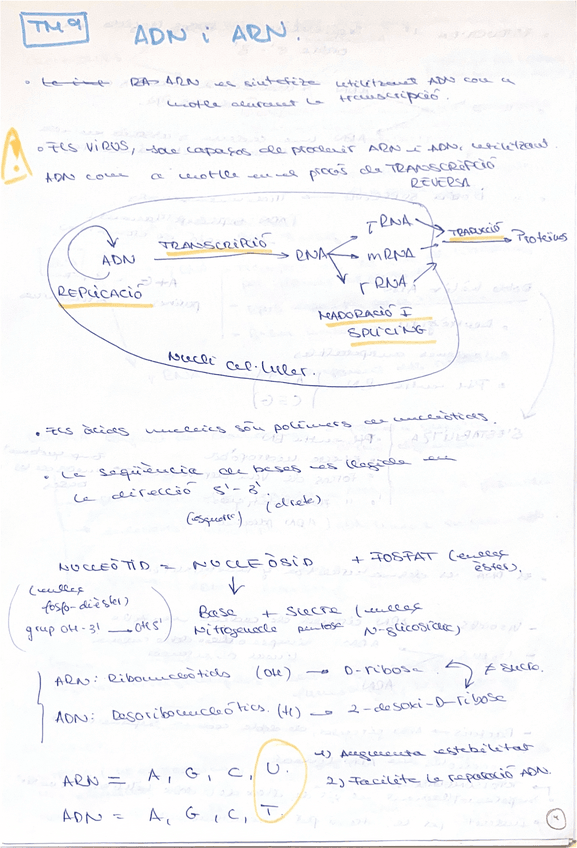 TM9
ADN i ARN.
• RA> ARN es sintetize utilitzant ADN com a
motlle durant la transcripció.
• Els VIRUS, són capaços de produir ARN i ADN, utilitzant
ADN com a motlle en el procés de TRANSCRIPCIÓ
REVERSA.
ADN TRANSCRIPCIÓ RNA tRNA mRNA rRNA TRADUCCIÓ Proteïnes
REPLICACIÓ
MADURACIÓ I
SPLICING
Nucli cel·lular.
• Els àcids nucleics són polímers de nucleòtids.
• La seqüència de bases es llegida en
la direcció 5'-3'.
(esquerra) (dreta)
NUCLEÒTID = NUCLEÒSID + FOSFAT (enllaç
èster).
(enllaç
fosfo-dièster)
grup OH-3' → OH5'
Base + Sucre (enllaç
Nitrogenada pentosa N-glicosídic)
ARN: Ribonucleòtids (OH) → D-ribosa ≠ sucre.
ADN: Desoxiribonucleòtics. (H) → 2-desoxi-D-ribosa
ARN = A, G, C, U.
ADN = A, G, C, T.
1) Augmenta estabilitat
2) Facilita la reparació ADN.